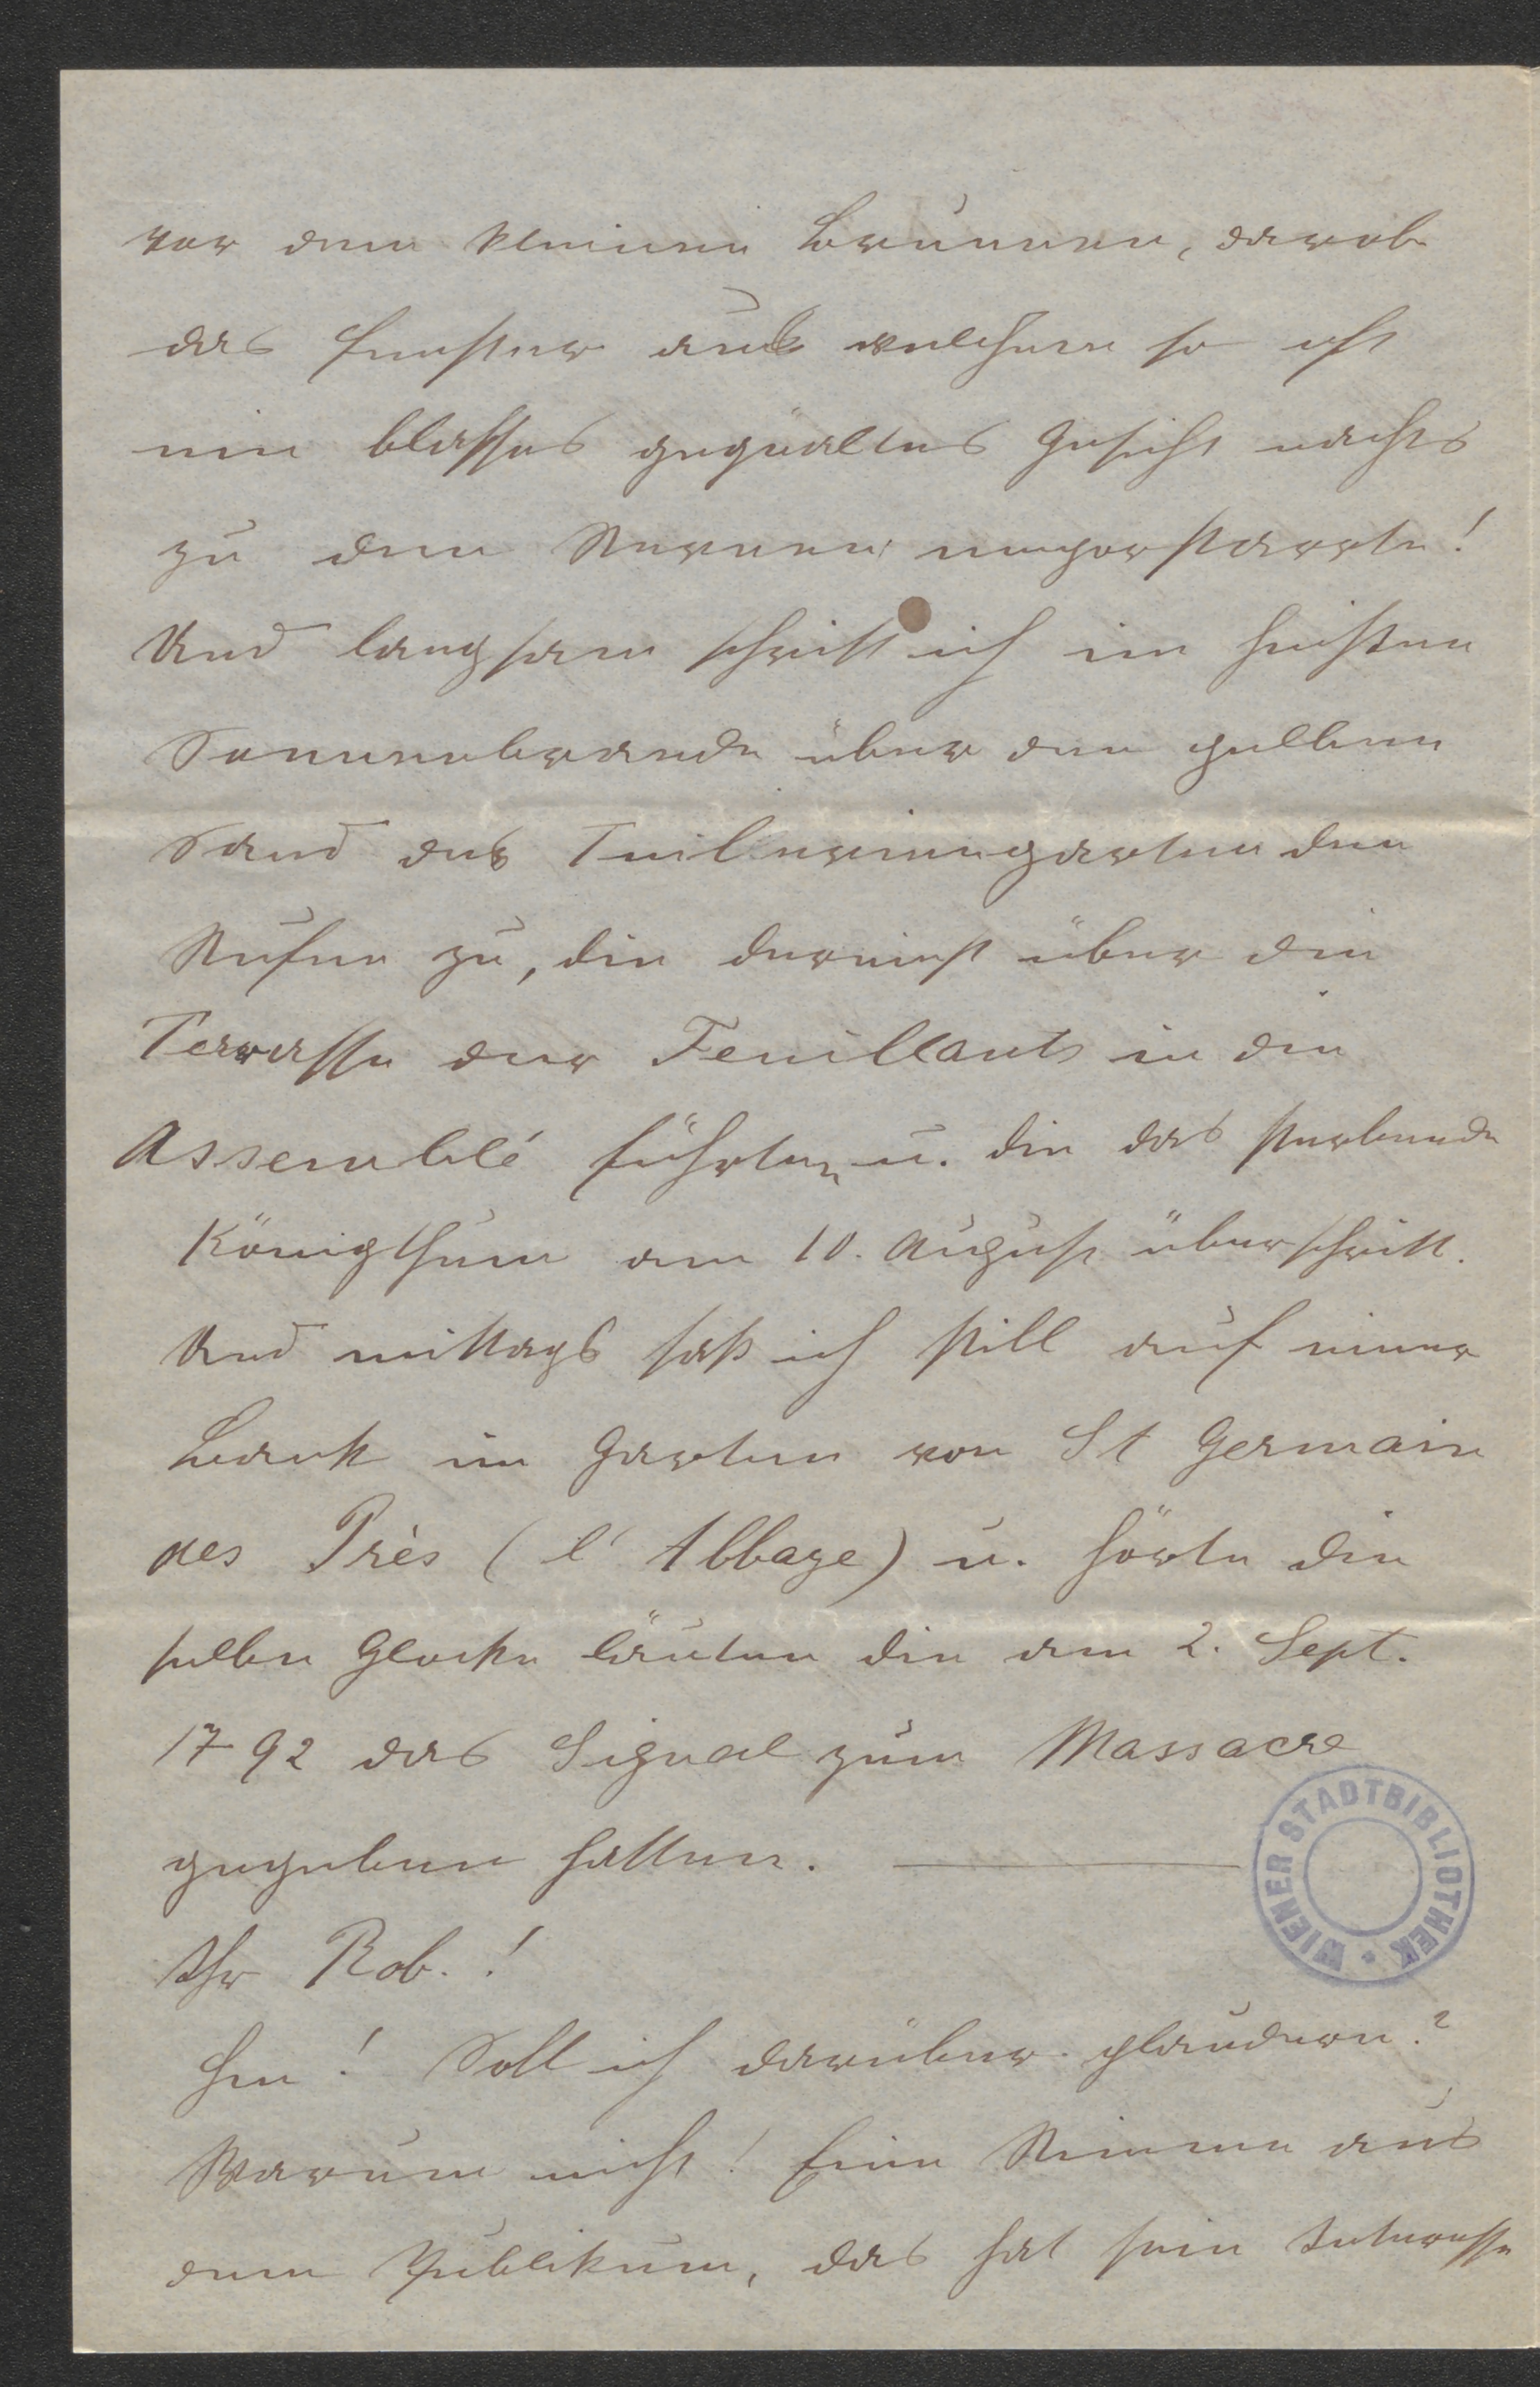 vor dem kleinen Brunnen, darob
das Fenster aus welchem so oft
ein blasses gequältes Gesicht nachts
zu den Sternen emporstarrte!
Und langsam schritt ich im heißen
Sonnenbrande über den gelben
Sand des Tuileriengarten den
Stufen zu, die dereinst über die
Terrasse der Feuillants in die
Assemblé führten u. die das sterbende
Königthum am 10. August überschritt.
Und mittags saß ich still auf einer
Bank im Garten von St Germain
des Près (l'Abbaye) u. hörte die
selbe Glocke läuten die am 2. Sept.
1792 das Signal zum Massacre
gegeben hatten. —
Ihr Rob.!
Hm! Soll ich darüber plaudern?
Warum nicht! Eine Stimme aus
dem Publikum, das hat sein Interesse
WIENER STADTBIBLIOTHEK